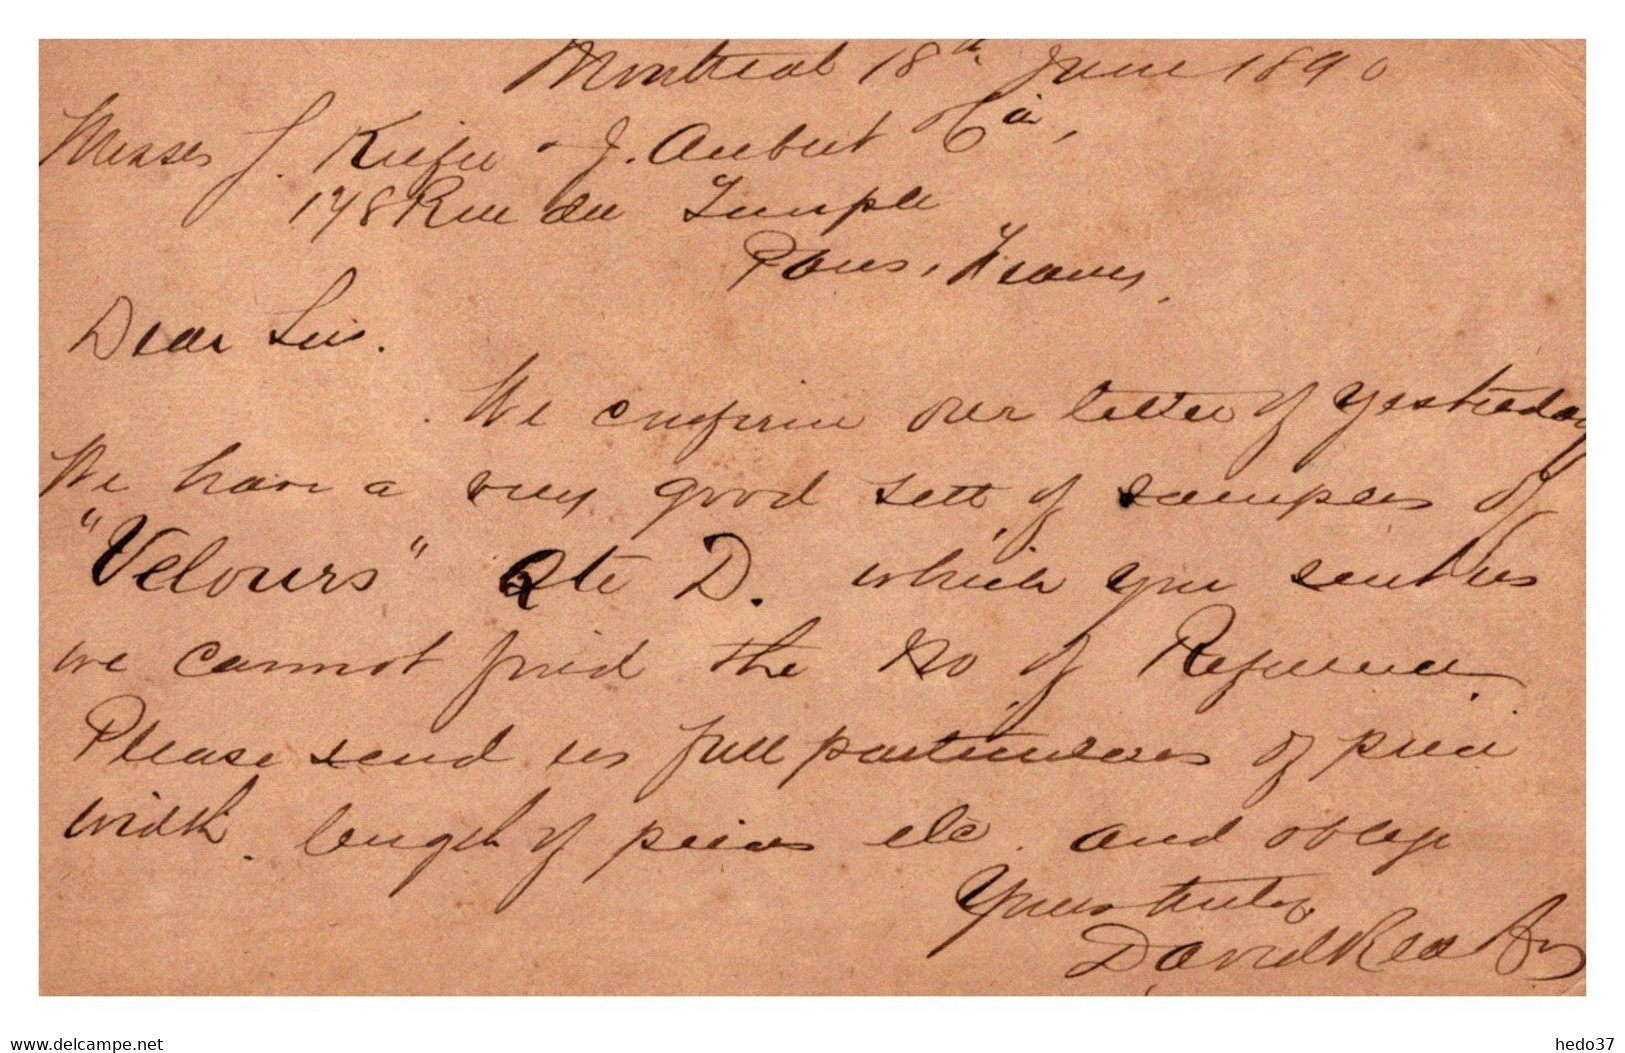 Montreal 18th June 1890
Messrs J. Kiefer & J. Aubert & Cie,
178 Rue du Temple
Paris, France,
Dear Sirs.
We confirm our letter of yesterday
We have a very good sett of samples of
"Velours" Qte D. which you sent us
we cannot find the No of Reference.
Please send us full particulars of price
width. length of pieces etc. and oblige
Yours truly
David Rea &
www.delcampe.net
hedo37